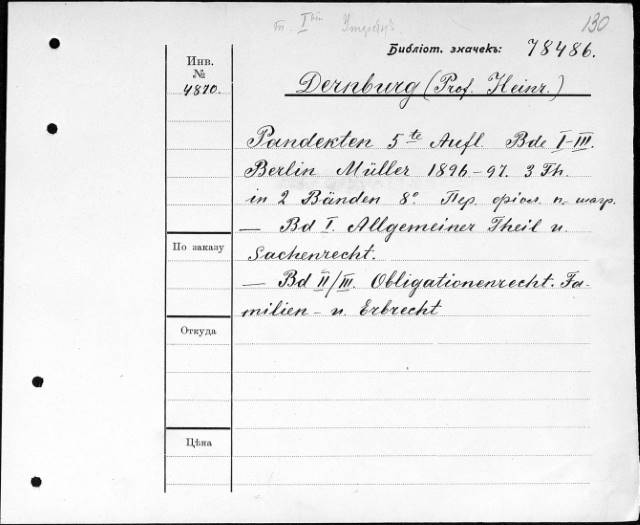 т. I
130
Библіот. значекъ: 78486.
Инв.
№
4870.
Dernburg (Prof. Heinr.)
Pandekten 5te Aufl. Bde I-III.
Berlin Müller 1896-97. 3 Th.
in 2 Bänden 8° Пер. фіол. п. шагр.
— Bd I. Allgemeiner Theil u.
Sachenrecht.
— Bd II/III. Obligationenrecht. Fa-
milien- u. Erbrecht
По заказу
Откуда
Цѣна